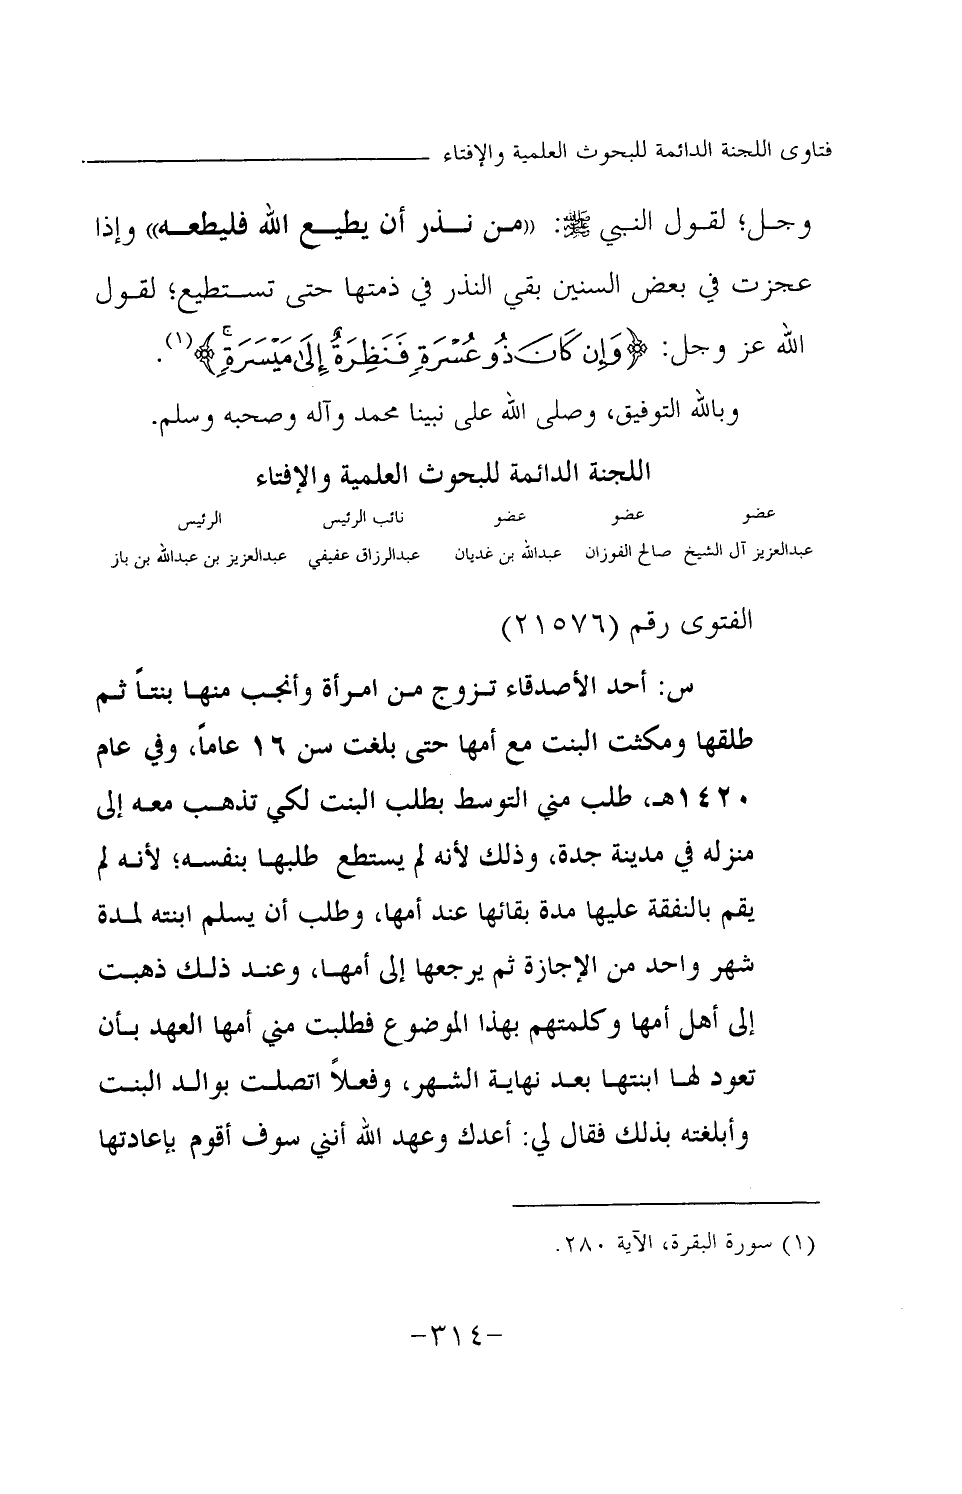 فتاوى اللجنة الدائمة للبحوث العلمية والإفتاء
وجل؛ لقول النبي ﷺ: «من نذر أن يطيع الله فليطعه» وإذا
عجزت في بعض السنين بقي النذر في ذمتها حتى تستطيع؛ لقول
الله عز وجل: ﴿وَإِن كَانَ ذُو عُسْرَةٍ فَنَظِرَةٌ إِلَى مَيْسَرَةٍ ۚ﴾(١).
وبالله التوفيق، وصلى الله على نبينا محمد وآله وصحبه وسلم.
اللجنة الدائمة للبحوث العلمية والإفتاء
عضو عضو عضو نائب الرئيس الرئيس
عبدالعزيز آل الشيخ صالح الفوزان عبدالله بن غديان عبدالرزاق عفيفي عبدالعزيز بن عبدالله بن باز
الفتوى رقم (٢١٥٧٦)
س: أحد الأصدقاء تزوج من امرأة وأنجب منها بنتاً ثم
طلقها ومكثت البنت مع أمها حتى بلغت سن ١٦ عاماً، وفي عام
١٤٢٠هـ، طلب مني التوسط بطلب البنت لكي تذهب معه إلى
منزله في مدينة جدة، وذلك لأنه لم يستطع طلبها بنفسه؛ لأنه لم
يقم بالنفقة عليها مدة بقائها عند أمها، وطلب أن يسلم ابنته لمدة
شهر واحد من الإجازة ثم يرجعها إلى أمها، وعند ذلك ذهبت
إلى أهل أمها وكلمتهم بهذا الموضوع فطلبت مني أمها العهد بأن
تعود لها ابنتها بعد نهاية الشهر، وفعلاً اتصلت بوالد البنت
وأبلغته بذلك فقال لي: أعدك وعهد الله أنني سوف أقوم بإعادتها
(١) سورة البقرة، الآية ٢٨٠.
-٣١٤-